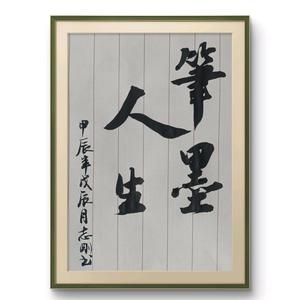 筆墨
人生
甲辰年戊辰月志刚书